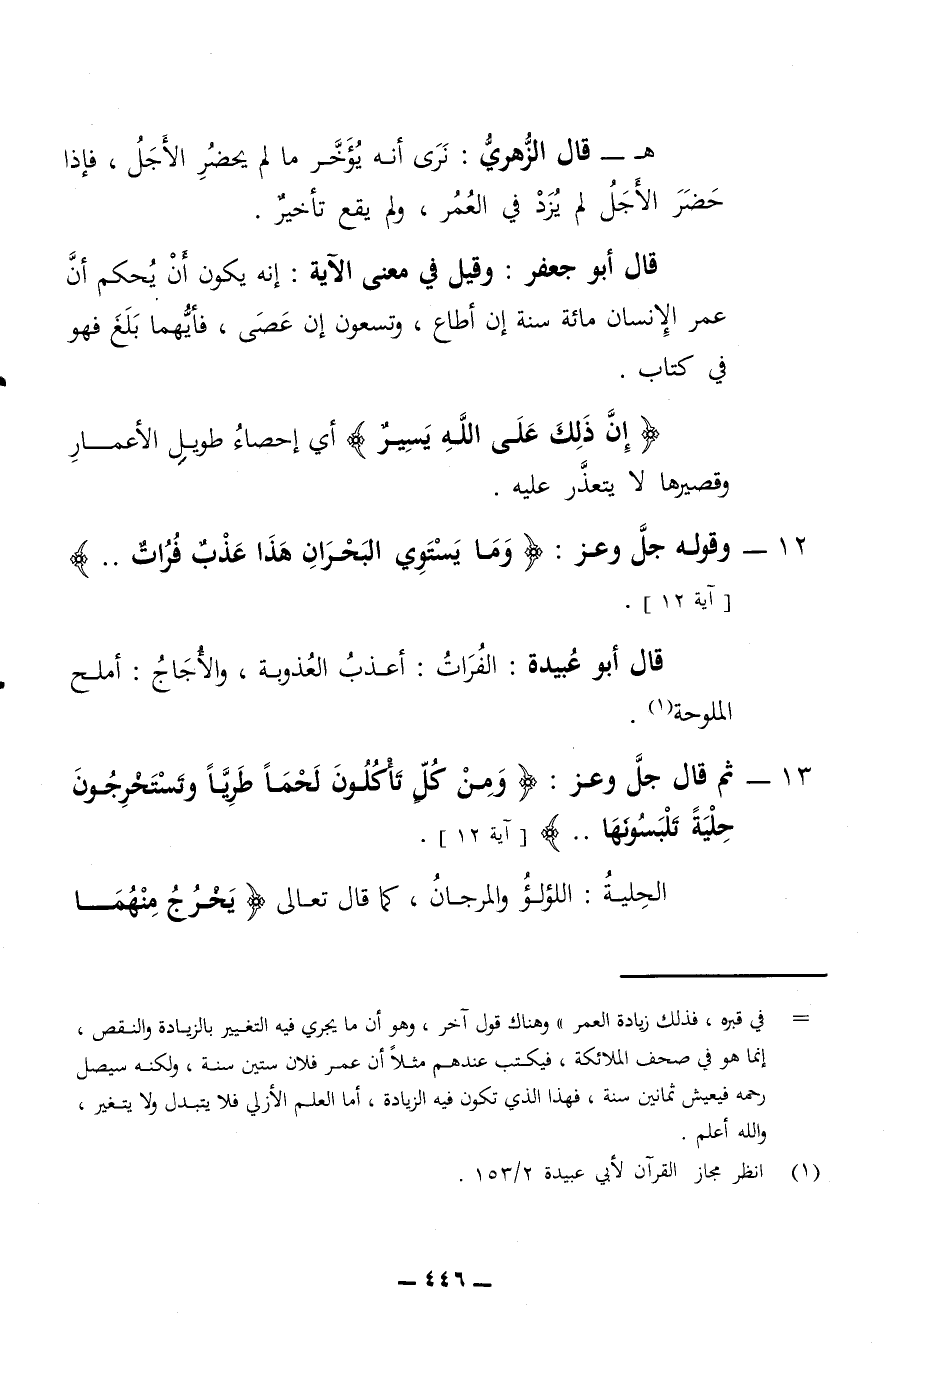 هـ ـ قال الزُّهريُّ : نَرَى أنـه يُؤَخَّـر ما لم يحضُرِ الأَجَلُ ، فإذا
حَضَرَ الأَجَلُ لم يُزَدْ في العُمُر ، ولم يقع تأخيرٌ .
قال أبو جعفر : وقيل في معنى الآية : إنه يكون أَنْ يُحكم أنَّ
عمر الإنسان مائة سنة إن أطاع ، وتسعون إن عَصَى ، فأيُّهما بَلَغَ فهو
في كتاب .
﴿ إِنَّ ذَلِكَ عَلَـى اللَّـهِ يَسِيـرٌ ﴾ أي إحصاءُ طويـلِ الأعمـــارِ
وقصيرها لا يتعذَّر عليه .
١٢ ـ وقولـه جلَّ وعـز : ﴿ وَمَـا يَسْتَوِي البَحْـرَانِ هَذَا عَذْبٌ فُرَاتٌ .. ﴾
[ آية ١٢ ] .
قال أبو عُبيدة : الفُرَاتُ : أعـذبُ العُذوبـة ، والأُجَاجُ : أملـح
الملوحة(١) .
١٣ ـ ثم قال جلَّ وعـز : ﴿ وَمِـنْ كُلٍّ تَأْكُلُـونَ لَحْمَـاً طَرِيَّـاً وتَسْتَخْرِجُـونَ
حِلْيَةً تَلْبَسُونَهَا .. ﴾ [ آية ١٢ ] .
الحِليـةُ : اللؤلـؤُ والمرجـانُ ، كما قال تعـالى ﴿ يَخْـرُجُ مِنْهُمَـــا
= في قبره ، فذلك زيادة العمر » وهناك قول آخر ، وهو أن ما يجري فيه التغيير بالزيـادة والنـقص ،
إنما هو في صحف الملائكة ، فيكتب عندهـم مثـلاً أن عمـر فلان ستين سنـة ، ولكنـه سيصل
رحمه فيعيش ثمانين سنة ، فهذا الذي تكون فيه الزيادة ، أما العلـم الأزلي فلا يتبدل ولا يتغير ،
والله أعلم .
(١) انظر مجاز القرآن لأبي عبيدة ١٥٣/٢ .
ـ ٤٤٦ ـ